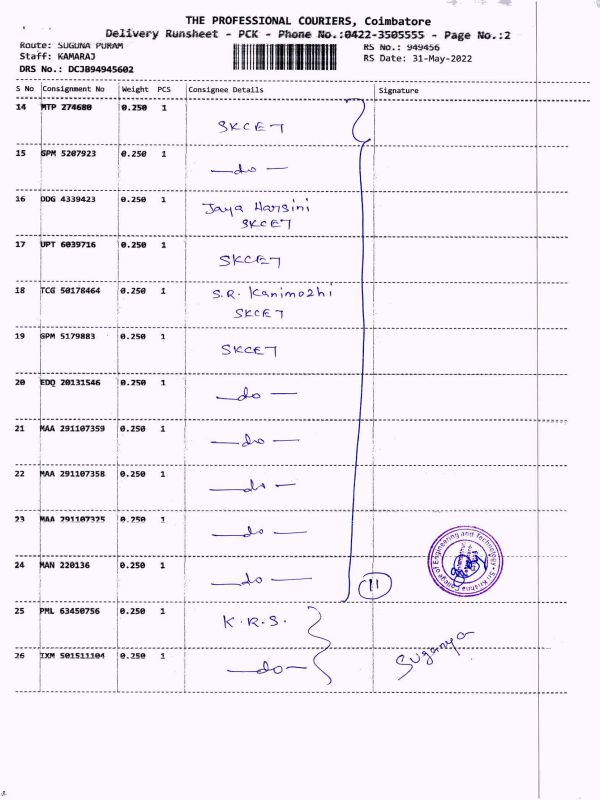 THE PROFESSIONAL COURIERS, Coimbatore
Delivery Runsheet - PCK - Phone No.:0422-3505555 - Page No.:2
Route: SUGUNA PURAM RS No.: 949456
Staff: KAMARAJ RS Date: 31-May-2022
DRS No.: DCJB94945602
S No Consignment No Weight PCS Consignee Details Signature
14 MTP 274680 0.250 1
SKCET
15 GPM 5207923 0.250 1
—do—
16 DDG 4339423 0.250 1
Jaya Harsini
SKCET
17 UPT 6039716 0.250 1
SKCET
18 TCG 50178464 0.250 1 S.R. Kanimozhi
SKCET
19 GPM 5179883 0.250 1
SKCET
20 EDQ 20131546 0.250 1
—do—
21 MAA 291107359 0.250 1
—do—
22 MAA 291107358 0.250 1
—do—
23 MAA 291107325 0.250 1
—do—
24 MAN 220136 0.250 1
—do—
11
Sri Krishna College of Engineering and Technology
25 PML 63450756 0.250 1
K.R.S.
26 IXM 501511104 0.250 1
—do—
Suganya